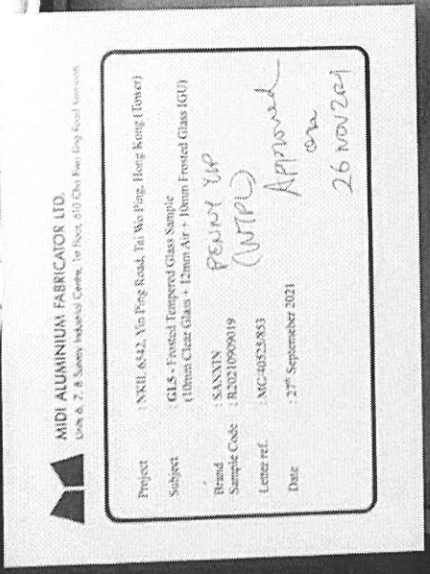 MIDI ALUMINIUM FABRICATOR LTD.
Units 6, 7, 8 Sunray Industrial Centre, 1st Floor, 610 Cha Kwo Ling Road Kowloon
Project : NKIL 6542, Yin Ping Road, Tai Wo Ping, Hong Kong (Tower)
Subject : GL5 - Frosted Tempered Glass Sample
(10mm Clear Glass + 12mm Air + 10mm Frosted Glass IGU)
Brand : SANXIN
Sample Code : R20210909019
Letter ref. : MC/40523/853
Date : 27th September 2021
PENNY YIP
(WTPL)
Approved
on
26 NOV 2021